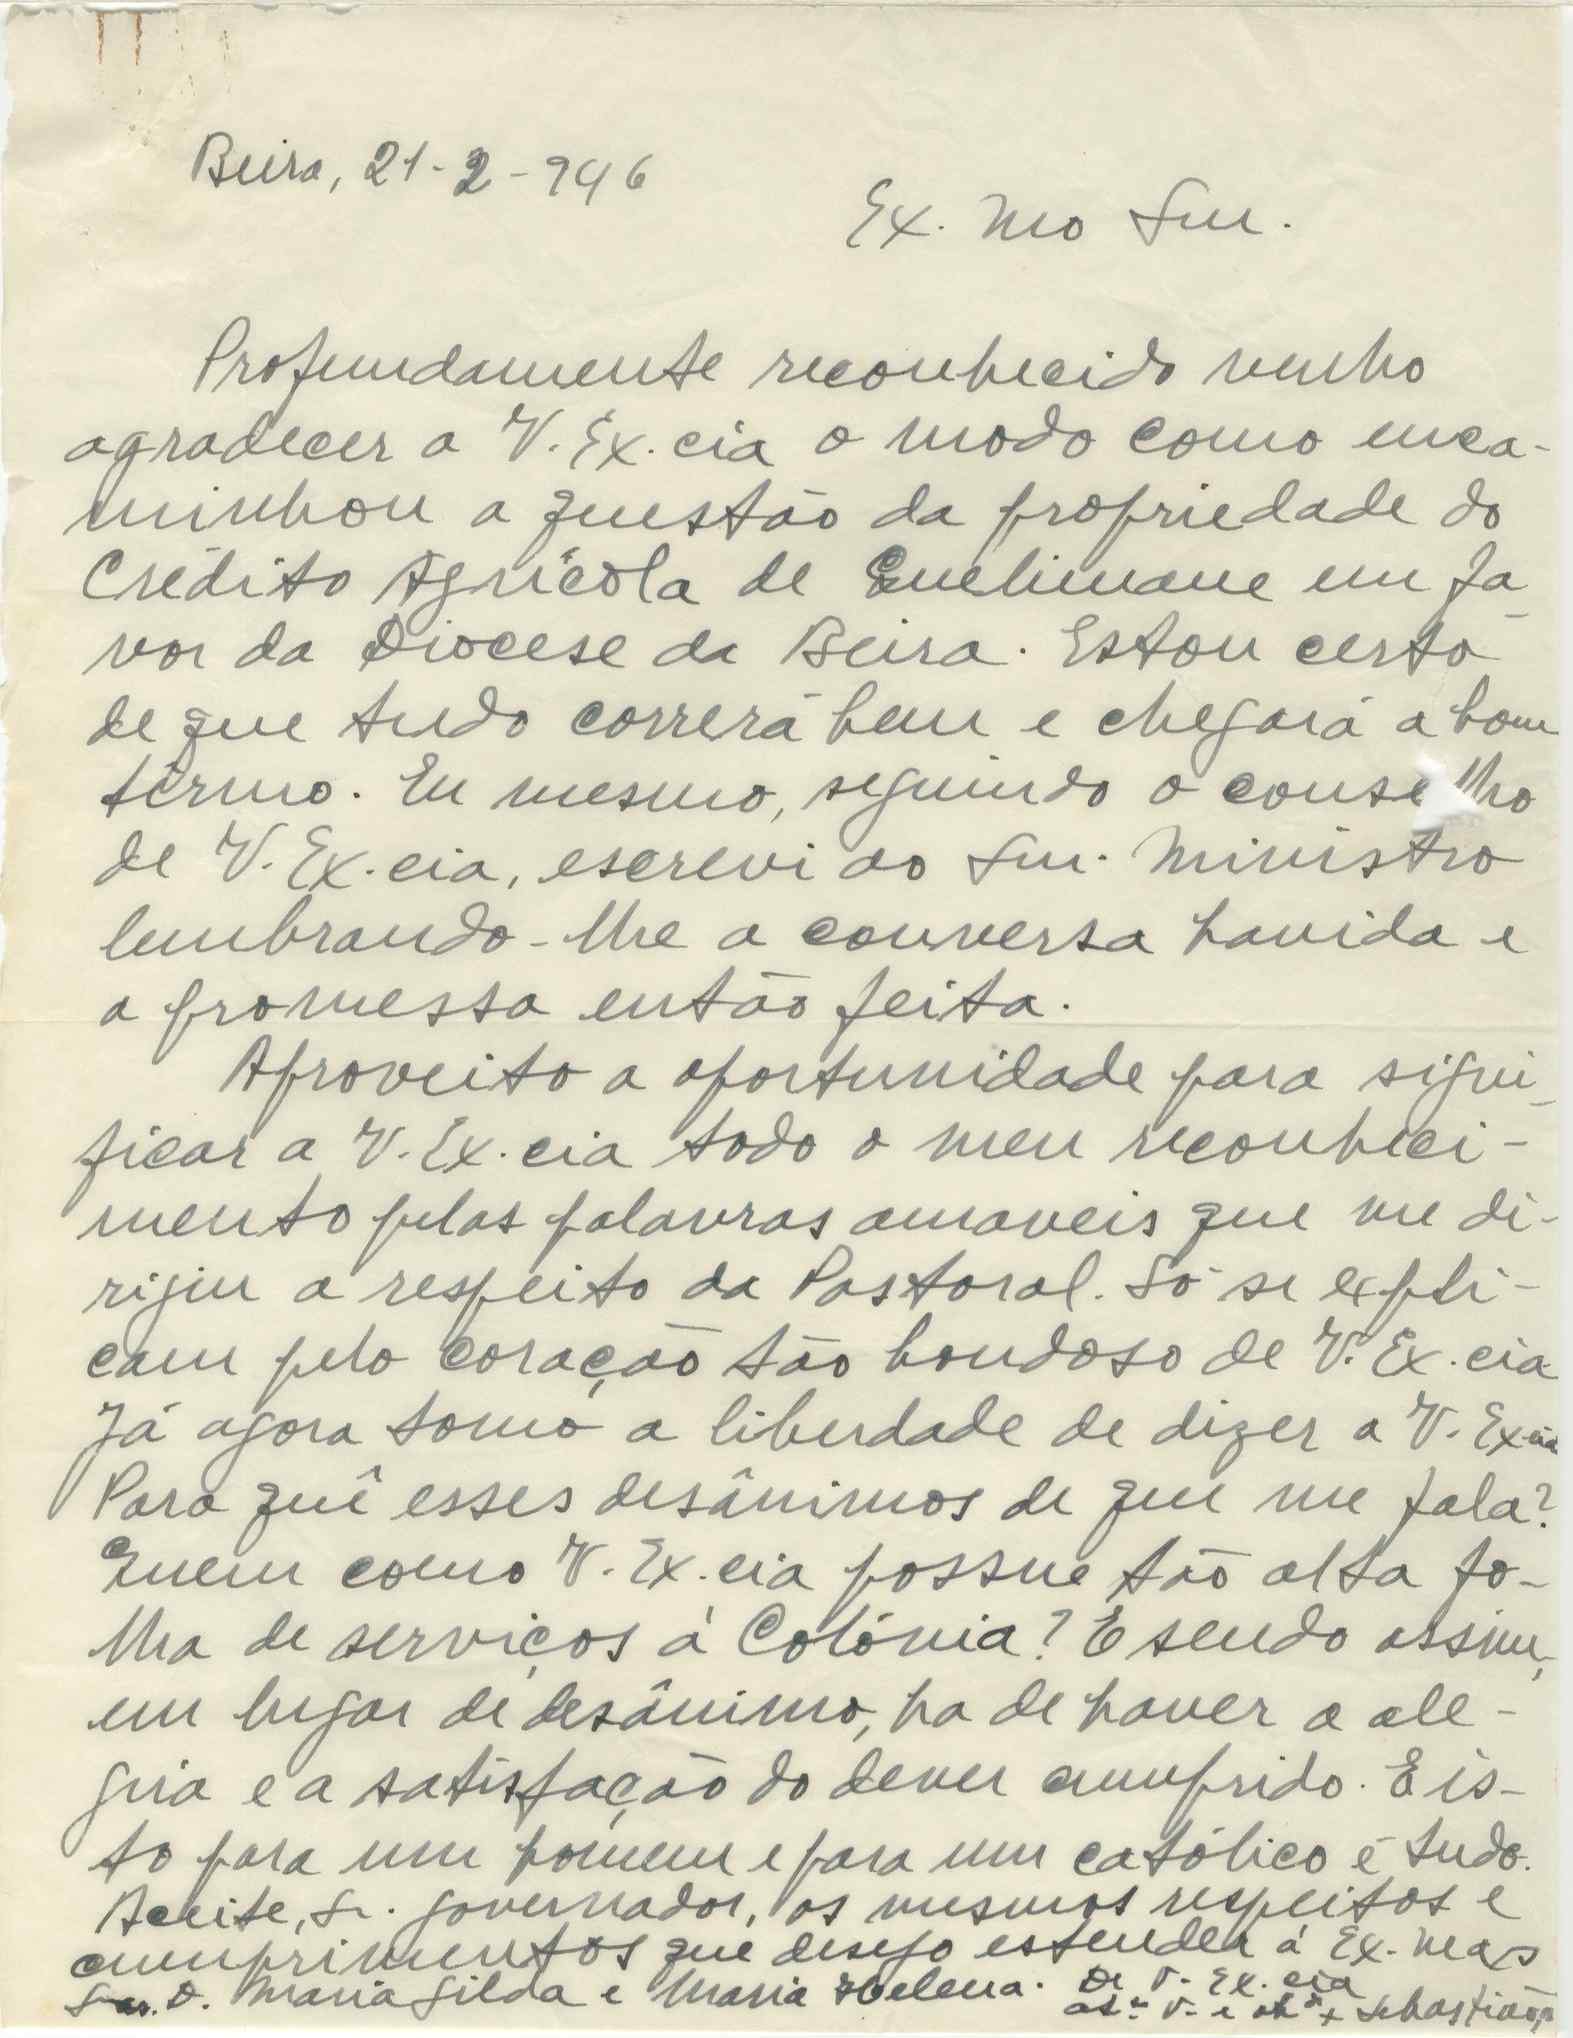 Beira, 21-2-946
Ex. mo Snr.
Profundamente reconhecido venho
agradecer a V. Ex. cia o modo como enca-
minhou a questão da propriedade do
Crédito Agrícola de Quelimane em fa-
vor da Diocese da Beira. Estou certo
de que tudo correrá bem e chegará a bom
têrmo. Eu mesmo, seguindo o conselho
de V. Ex. cia, escrevi ao Snr. Ministro
lembrando-lhe a conversa havida e
a promessa então feita.
Aproveito a oportunidade para signi-
ficar a V. Ex. cia todo o meu reconheci-
mento pelas palavras amaveis que me di-
rigiu a respeito da Pastoral. Só se expli-
cam pelo coração tão bondoso de V. Ex. cia
Já agora tomo a liberdade de dizer a V. Ex. cia
Para quê esses desânimos de que me fala?
Quem como V. Ex. cia possue tão alta fo-
lha de serviços á Colónia? E sendo assim,
em lugar de desânimo, ha de haver a ale-
gria e a satisfação do dever cumprido. E is-
to para um homem e para um católico é tudo.
Aceite, Sr. Governador, os mesmos respeitos e
cumprimentos que desejo estender á Ex. mas
Snr. D. Maria Gilda e Maria Helena. De V. Ex. cia
V. e + Sebastião